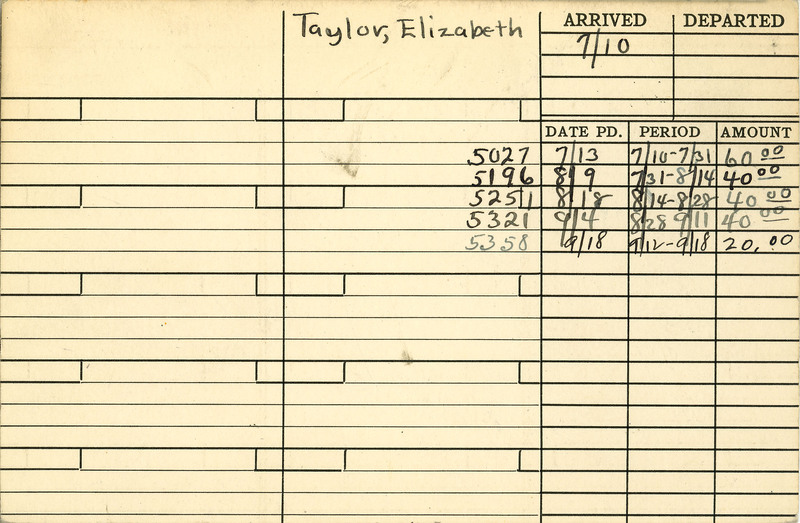 Taylor, Elizabeth ARRIVED DEPARTED
7/10
DATE PD. PERIOD AMOUNT
5027 7/13 7/10-7/31 60 00
5196 8/9 7/31-8/14 40 00
5251 8/18 8/14-8/28 40 00
5321 9/4 8/28 9/11 40 00
5358 9/18 9/12-9/18 20.00